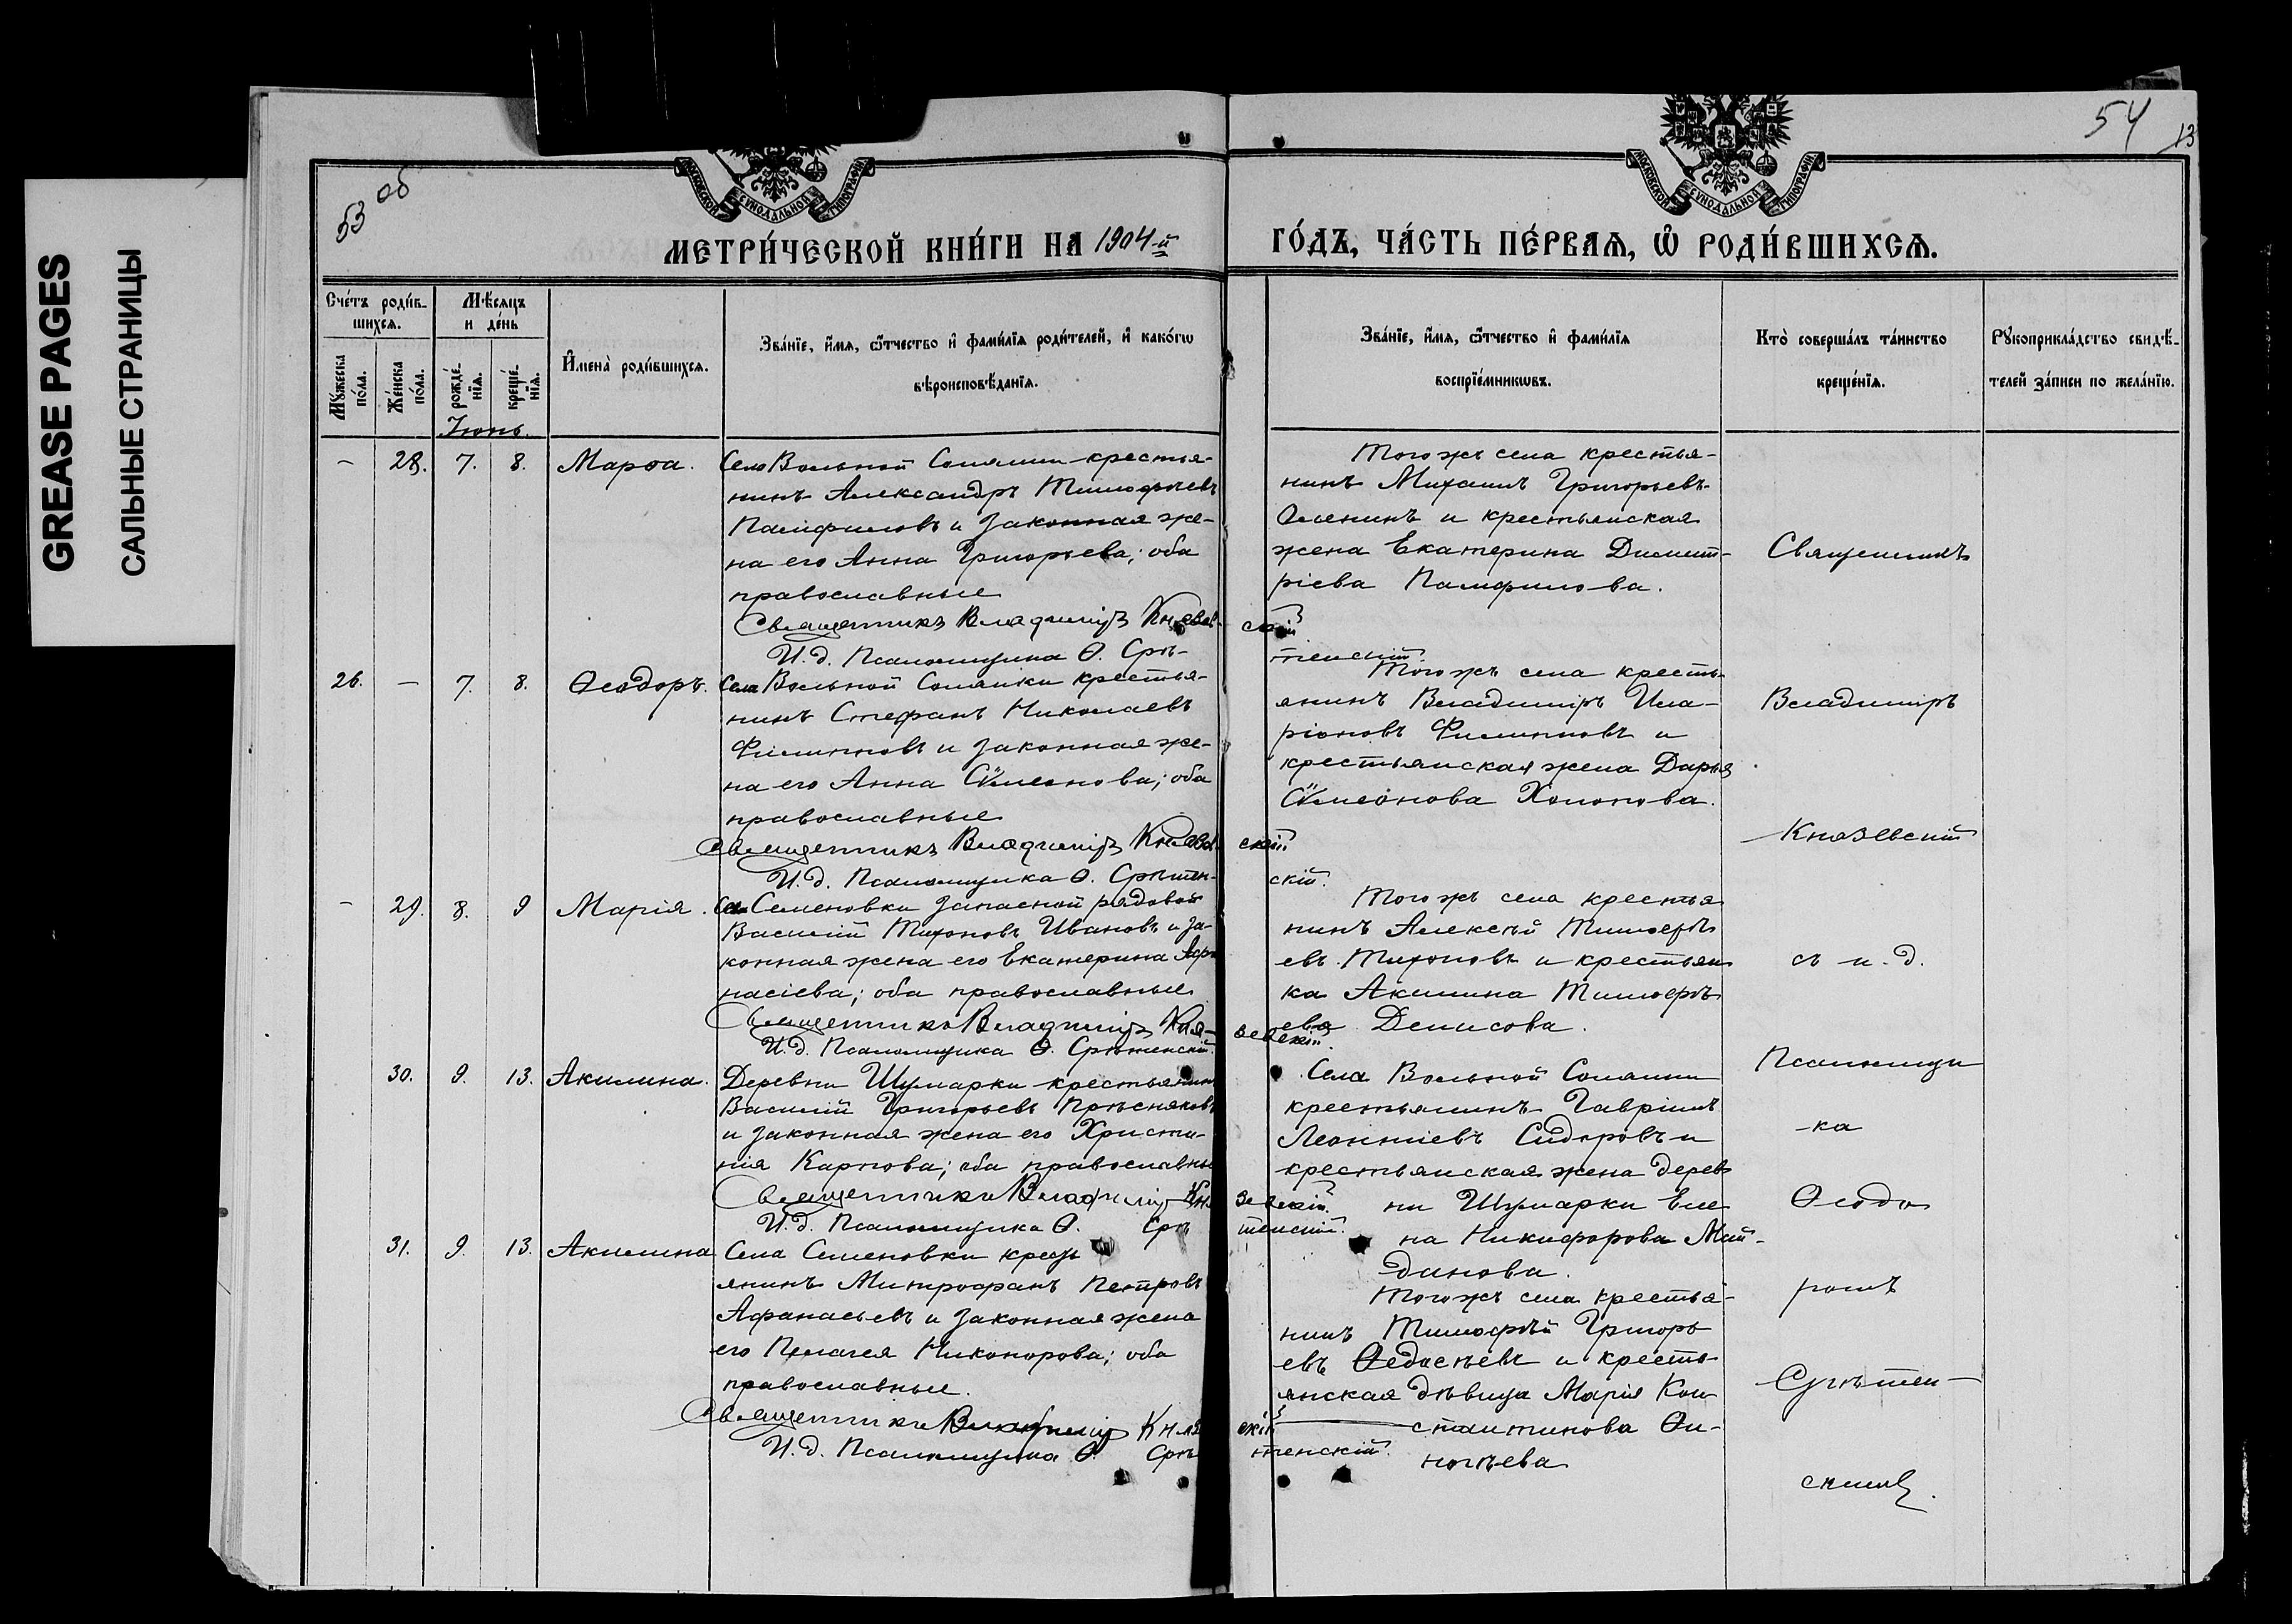 GREASE PAGES
САЛЬНЫЕ СТРАНИЦЫ
53 об
54
13
МОСКОВСКОЙ СѴНОДАЛЬНОЙ ТИПОГРАФІИ
МОСКОВСКОЙ СѴНОДАЛЬНОЙ ТИПОГРАФІИ
МЕТРИ́ЧЕСКОЙ КНИ́ГИ НА 1904-й ГО́ДЪ, ЧА́СТЬ ПЕ́РВАѦ, Ѡ҆ РОДИ́ВШИХСѦ.
Сче́тъ роди́в-
шихсѧ.
Мꙋ́жеска
по́ла.
Же́нска
по́ла.
Мѣ́сѧцъ
и де́нь
рожде́-
нїѧ.
креще́-
нїѧ.
И҆мена̀ роди́вшихсѧ.
Зва́нїе, и҆́мѧ, ѻ҆́тчество и҆ фами́лїѧ роди́телей, и҆ како́гѡ
вѣроисповѣ́данїѧ.
Зва́нїе, и҆́мѧ, ѻ҆́тчество и҆ фами́лїѧ
воспрїе́мникѡвъ.
Кто̀ соверша́лъ та́инство
креще́нїѧ.
Рꙋкоприкла́дство свидѣ́-
телей за́писи по жела́нїю.
Іюнь.
– 28. 7. 8. Марѳа.
Село Вольной Солянки крестья-
нинъ Александръ Тимофеевъ
Памфиловъ и законная же-
на его Анна Григорьева; оба
православные
Священникъ Владиміръ Князевскій
И.д. Псаломщика Ѳ. Срѣтенскій.
Того жъ села крестья-
нинъ Михаилъ Григорьевъ
Оленинъ и крестьянская
жена Екатерина Димит-
ріева Памфилова.
26. – 7. 8. Ѳеодоръ.
Села Вольной Солянки крестья-
нинъ Стефанъ Николаевъ
Филипповъ и законная же-
на его Анна Сѵмеонова; оба
православные
Священникъ Владиміръ Князевскій
И.д. Псаломщика Ѳ. Срѣтенскій.
Того жъ села кресть-
янинъ Владиміръ Ила-
ріоновъ Филипповъ и
крестьянская жена Дарья
Сѵмеонова Холопова.
– 29. 8. 9 Марія.
Села Семеновки запасной рядовой
Василій Тихоновъ Ивановъ и за-
конная жена его Екатерина Афа
насіева; оба православные
Священникъ Владиміръ Князевскій
И.д. Псаломщика Ѳ. Срѣтенскій.
Того жъ села крестья
нинъ Алексѣй Тимофе
евъ Тихоновъ и крестьян
ка Акилина Тимофе
ева Денисова.
30. 9. 13. Акилина.
Деревни Шумарки крестьянинъ
Василій Григорьевъ Прѣсняковъ
и законная жена его Христи-
нія Карпова; оба православные
Священникъ Владиміръ Князевскій
И.д. Псаломщика Ѳ. Срѣтенскій.
Села Вольной Солянки
крестьянинъ Гавріилъ
Леонтіевъ Сидоровъ и
крестьянская жена дерев
ни Шумарки Еле
на Никифорова Май-
данова.
31. 9. 13. Акилина
Села Семеновки кресть
янинъ Митрофанъ Петровъ
Афанасьевъ и законная жена
его Пелагея Никонорова; оба
православные.
Священникъ Владиміръ Князевскій
И.д. Псаломщика Ѳ. Срѣтенскій.
Того жъ села крестья-
нинъ Тимофѣй Григорь
евъ Ѳедосѣевъ и кресть-
янская дѣвица Марія Кон
стантинова Ѳи-
ногѣева
Священникъ
Владиміръ
Князевскій
съ и.д.
Псаломщи
-ка
Ѳеодо
ромъ
Срѣтен-
скимъ.